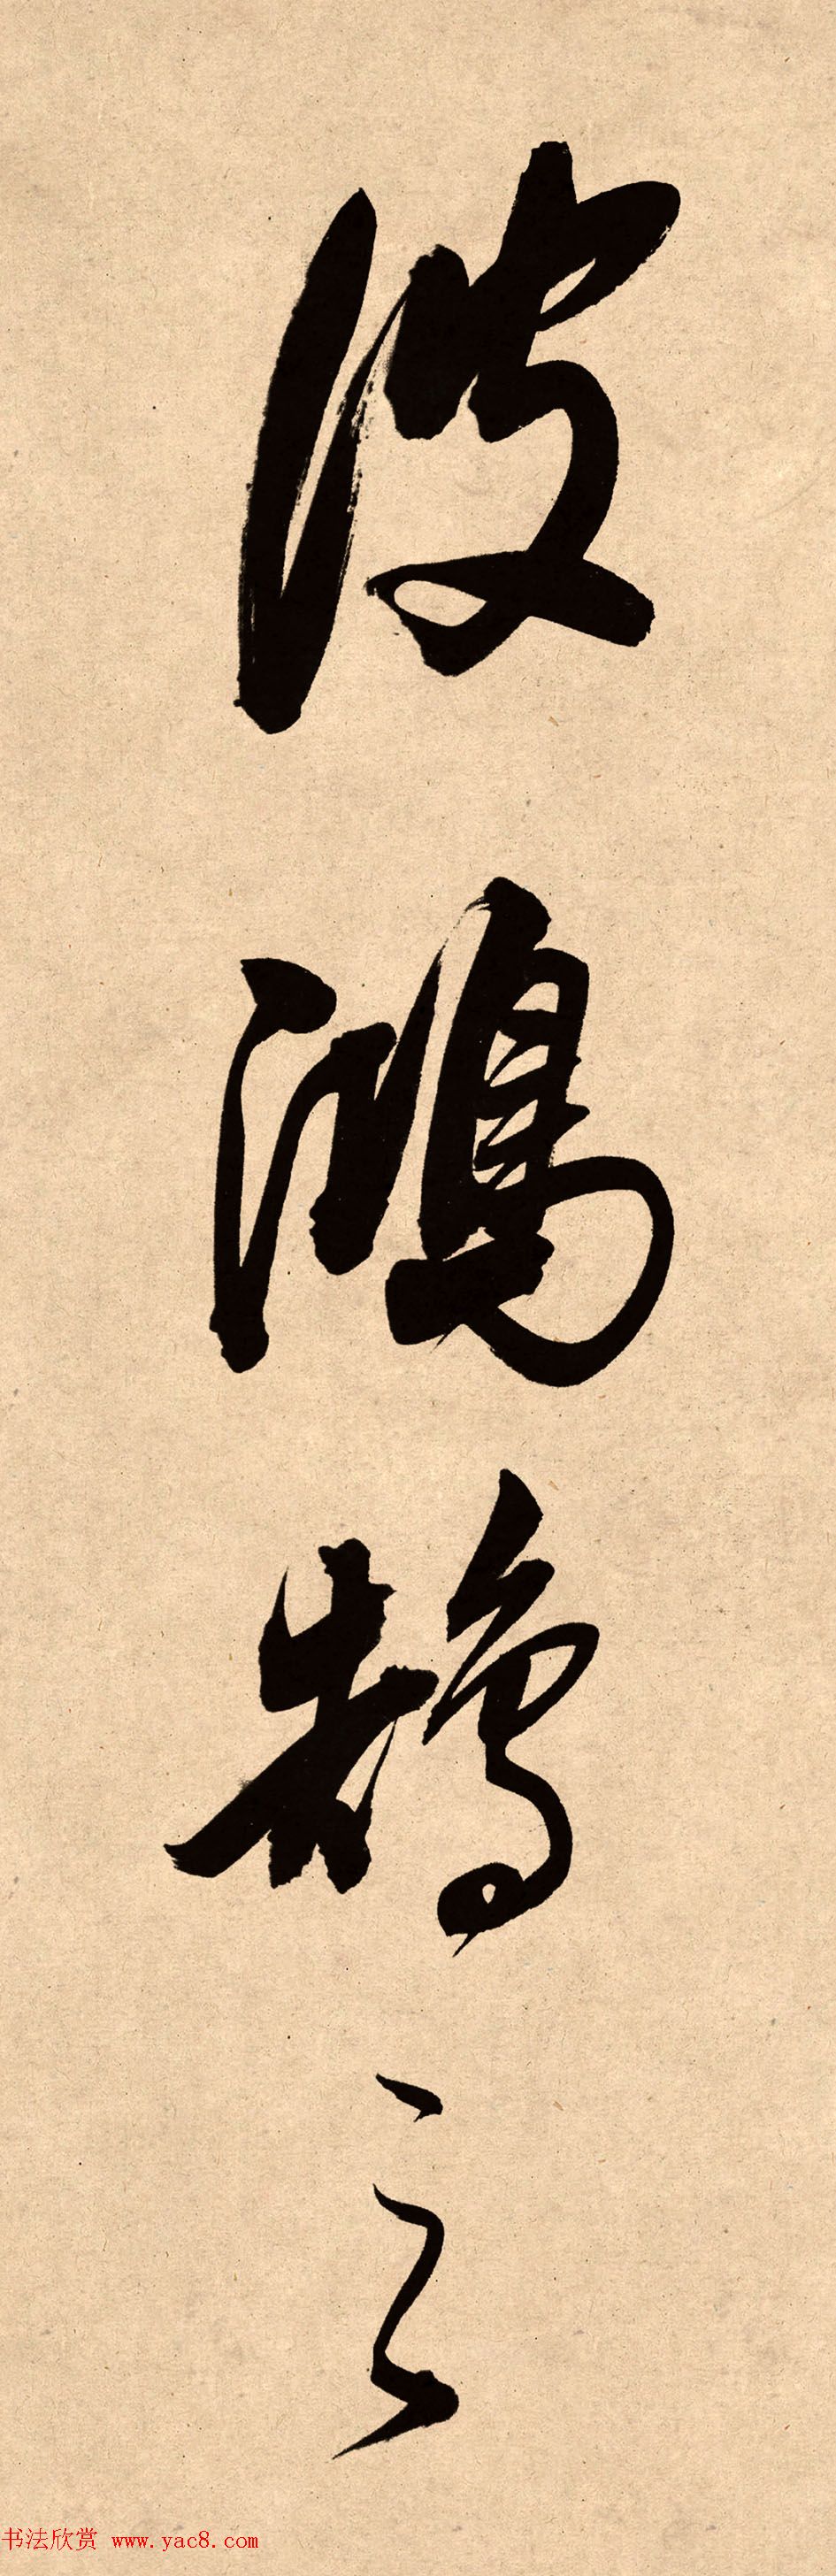 彼鸿鹄之
书法欣赏 www.yac8.com